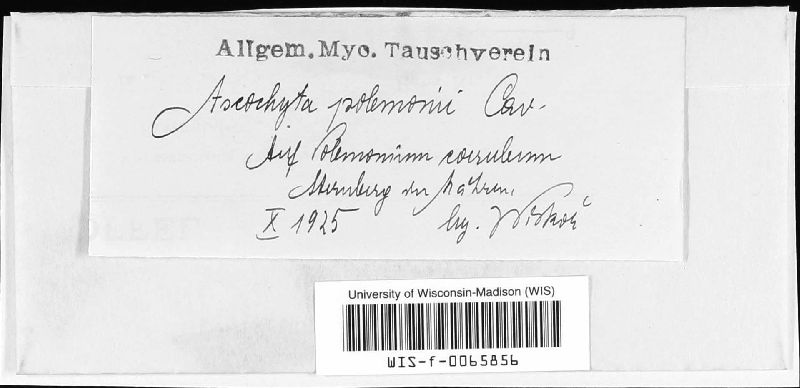 Allgem. Myc. Tauschverein
Ascochyta polemonii Cav.
Auf Polemonium coeruleum
Sternberg in Mähren.
X 1925 lg.
University of Wisconsin-Madison (WIS)
WIS-f-0065856